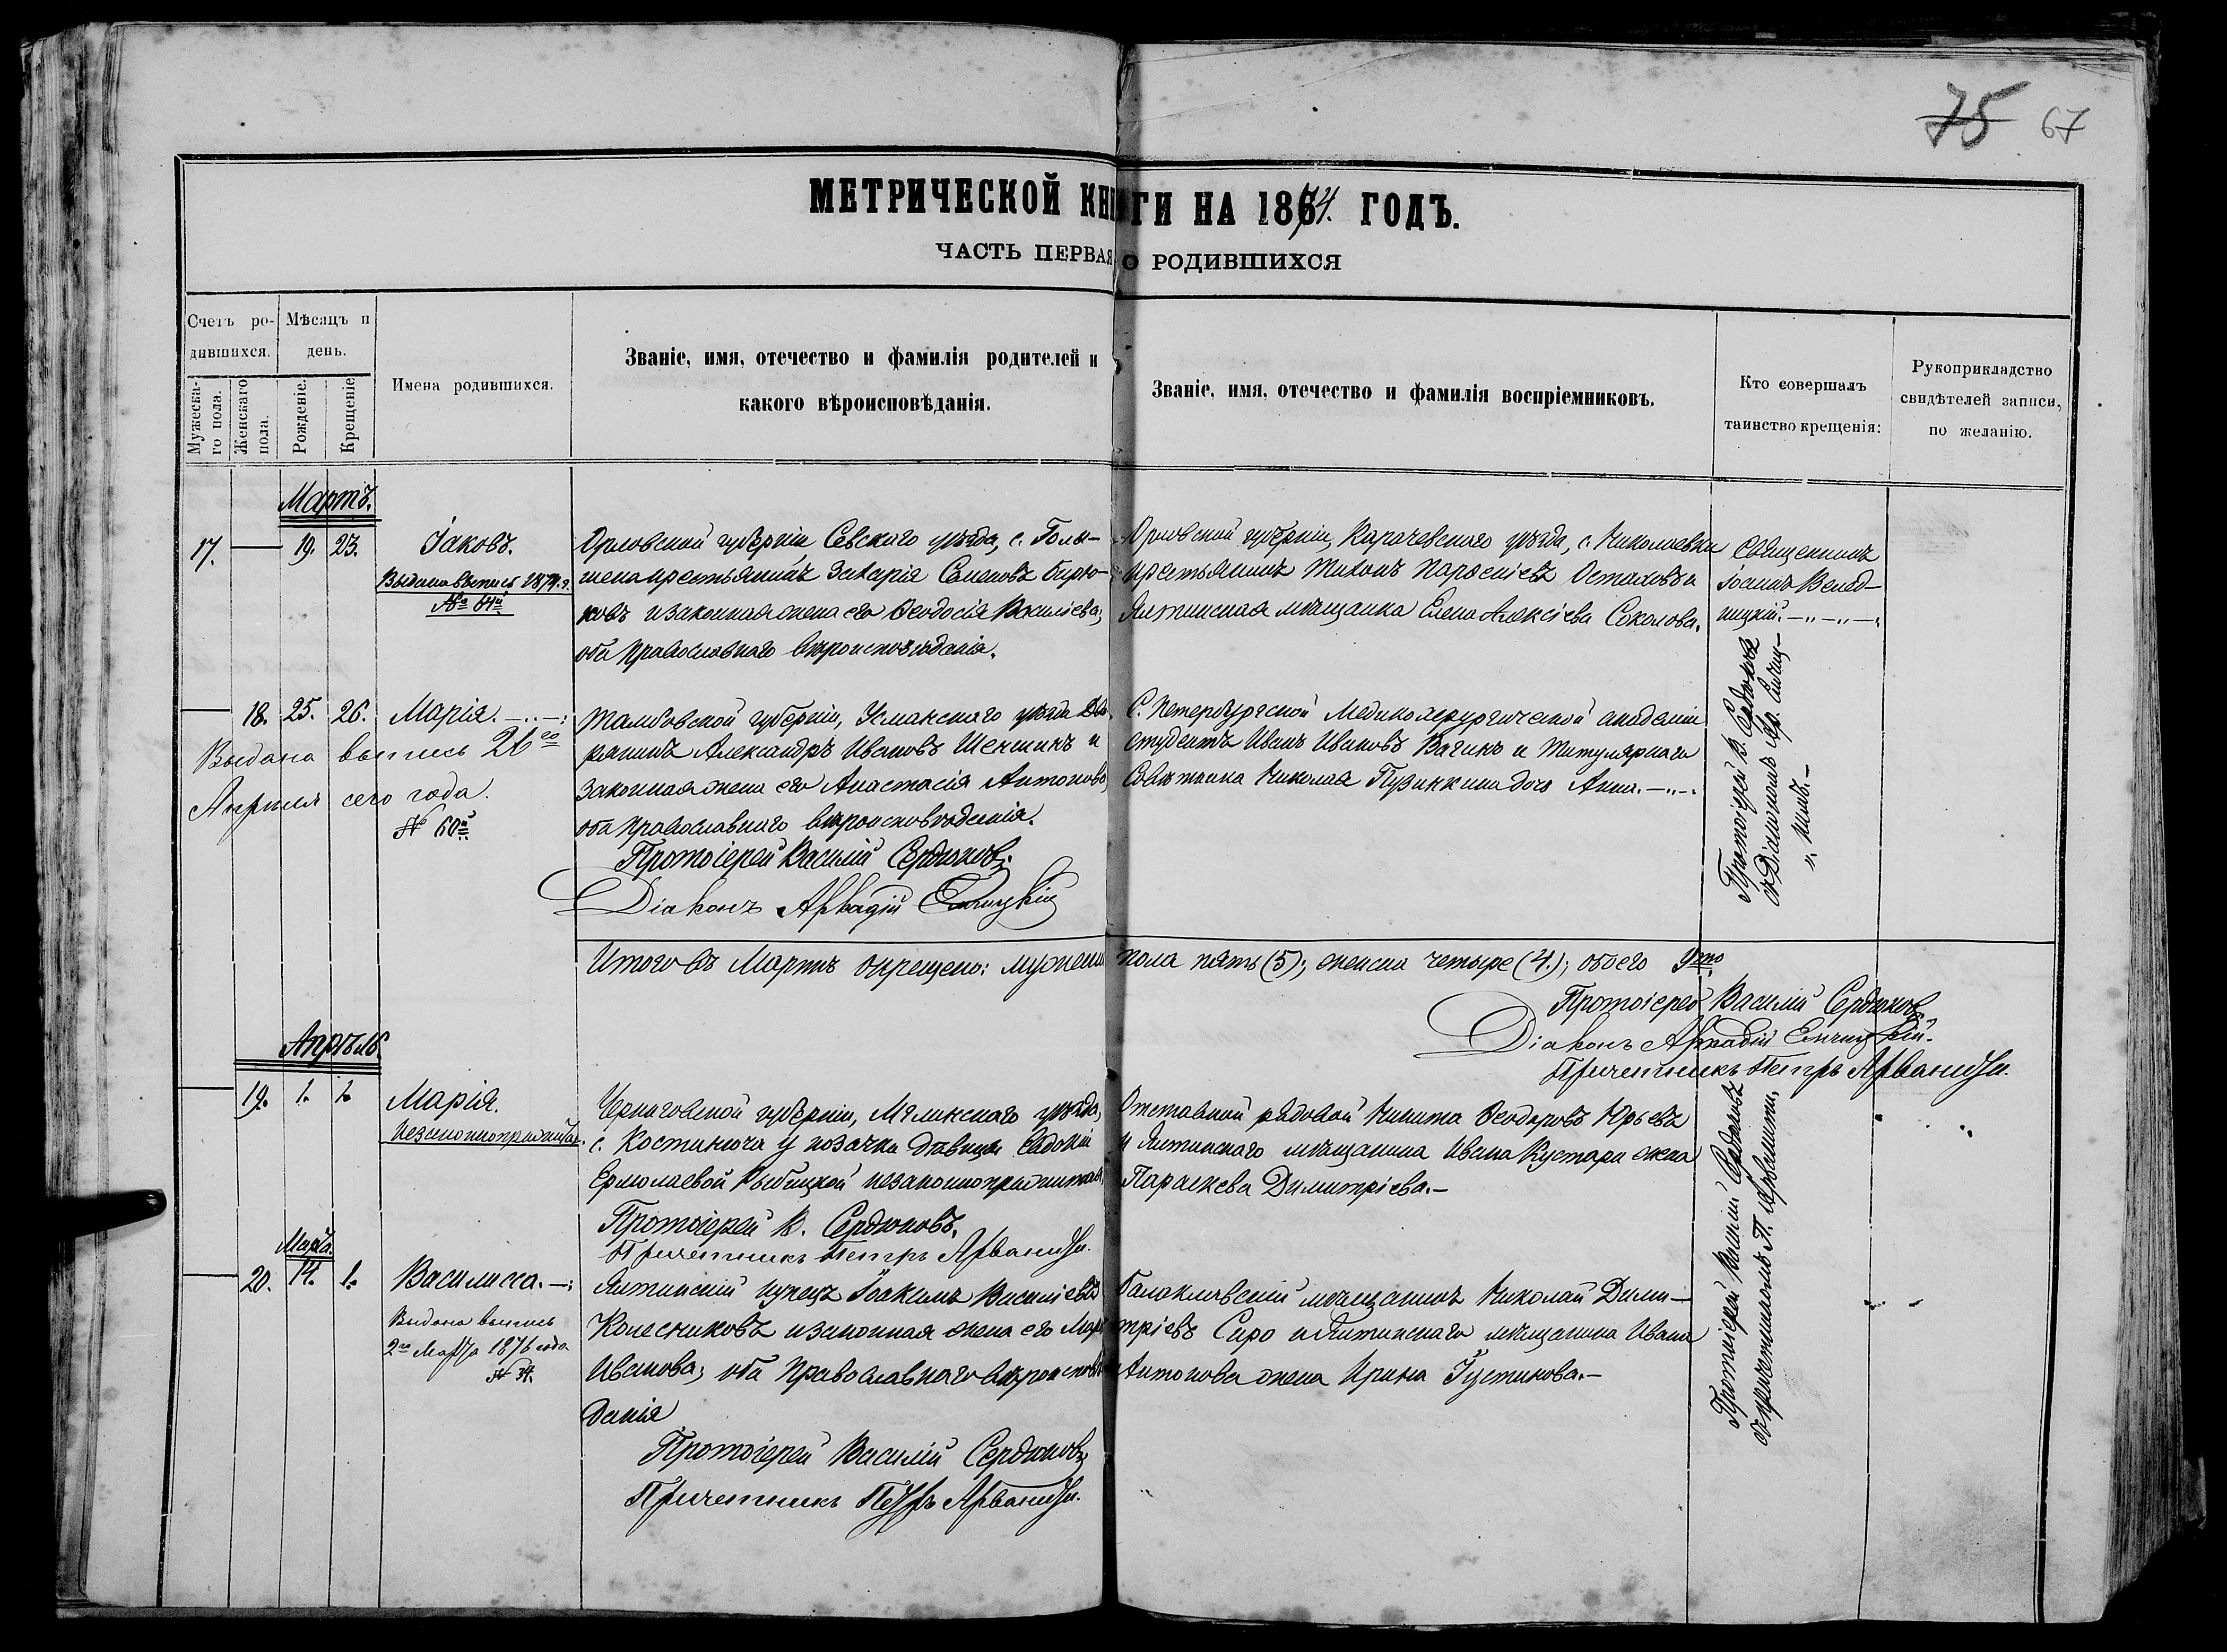 75 67
МЕТРИЧЕСКОЙ КНИГИ НА 1874. ГОДЪ.
ЧАСТЬ ПЕРВАЯ О РОДИВШИХСЯ
Счетъ ро-
дившихся.
Мужеска-
го пола.
Женскаго
пола.
Мѣсяцъ и
день.
Рожденіе.
Крещеніе.
Имена родившихся.
Званіе, имя, отечество и фамилія родителей и
какого вѣроисповѣданія.
Званіе, имя, отечество и фамилія воспріемниковъ.
Кто совершалъ
таинство крещенія:
Рукоприкладство
свидѣтелей записи,
по желанію.
Мартъ.
17. — 19. 23. Іаковъ.
Выдана выпись 1874 г.
№ 64й
Орловской губерніи Севскаго уѣзда, с. Голы-
шена крестьянинъ Захарія Семеновъ Бирю-
ковъ и законная жена его Ѳеодосія Василіева;
оба православнаго вѣроисповѣданія.
Орловской губерніи, Карачевскаго уѣзда, с. Николаевки
крестьянинъ Тихонъ Парѳеніевъ Осталовъ и
Ялтинская мѣщанка Елена Алексіева Соколова.
Священникъ
Іоаннъ Велед-
ницкій.
— 18. 25. 26. Марія.
Выдана выпись 26го
Апреля сего года.
№ 60й
Тамбовской губерніи, Усманскаго уѣзда Дво-
рянинъ Александръ Ивановъ Шеншинъ и
законная жена его Анастасія Антонова,
оба православнаго вѣроисповѣданія.
Протоіерей Василій Сердюковъ.
Діаконъ Аркадій Енчицкій
С. Петербургской Медикохирургической академіи
студентъ Иванъ Ивановъ Вагинъ и Титулярнаго
Совѣтника Николая Пузинкина дочь Анна.
Протоіерей В. Сердюковъ
съ Діакономъ Ар. Енчиц-
кимъ.
Итого въ Мартѣ окрещено: мужеска пола пять (5); женска четыре (4.); обоего 9ть
Протоіерей Василій Сердюковъ
Діаконъ Аркадій Енчицкій.
Причетникъ Петръ Арваниди.
Апрѣль.
— 19. 1. 1. Марія.
незаконноприжитая.
Черниговской губерніи, Мглинскаго уѣзда,
с. Костинича у козачки дѣвицы Евдокіи
Ермолаевой Рыбицкой незаконноприжитая,
Протоіерей В. Сердюковъ.
Причетникъ Петръ Арваниди.
Отставной рядовой Никита Ѳеодоровъ Юрьевъ
и Ялтинскаго мѣщанина Ивана Кустари жена
Параскева Димитріева.—
Марта.
— 20. 14. 1. Василисса.
Выдана выпись
2го Марта 1876 года
№ 34.
Ялтинскій купецъ Іоакимъ Василіевъ
Колесниковъ и законная жена его Марія
Иванова; оба православнаго вѣроисповѣ-
данія
Протоіерей Василій Сердюковъ
Причетникъ Петръ Арваниди.
Балаклавскій мѣщанинъ Николай Дими-
тріевъ Сиро и Ялтинскаго мѣщанина Ивана
Антонова жена Ирина Іустинова.—
Протоіерей Василій Сердюковъ
съ причетникомъ П. Арваниди.